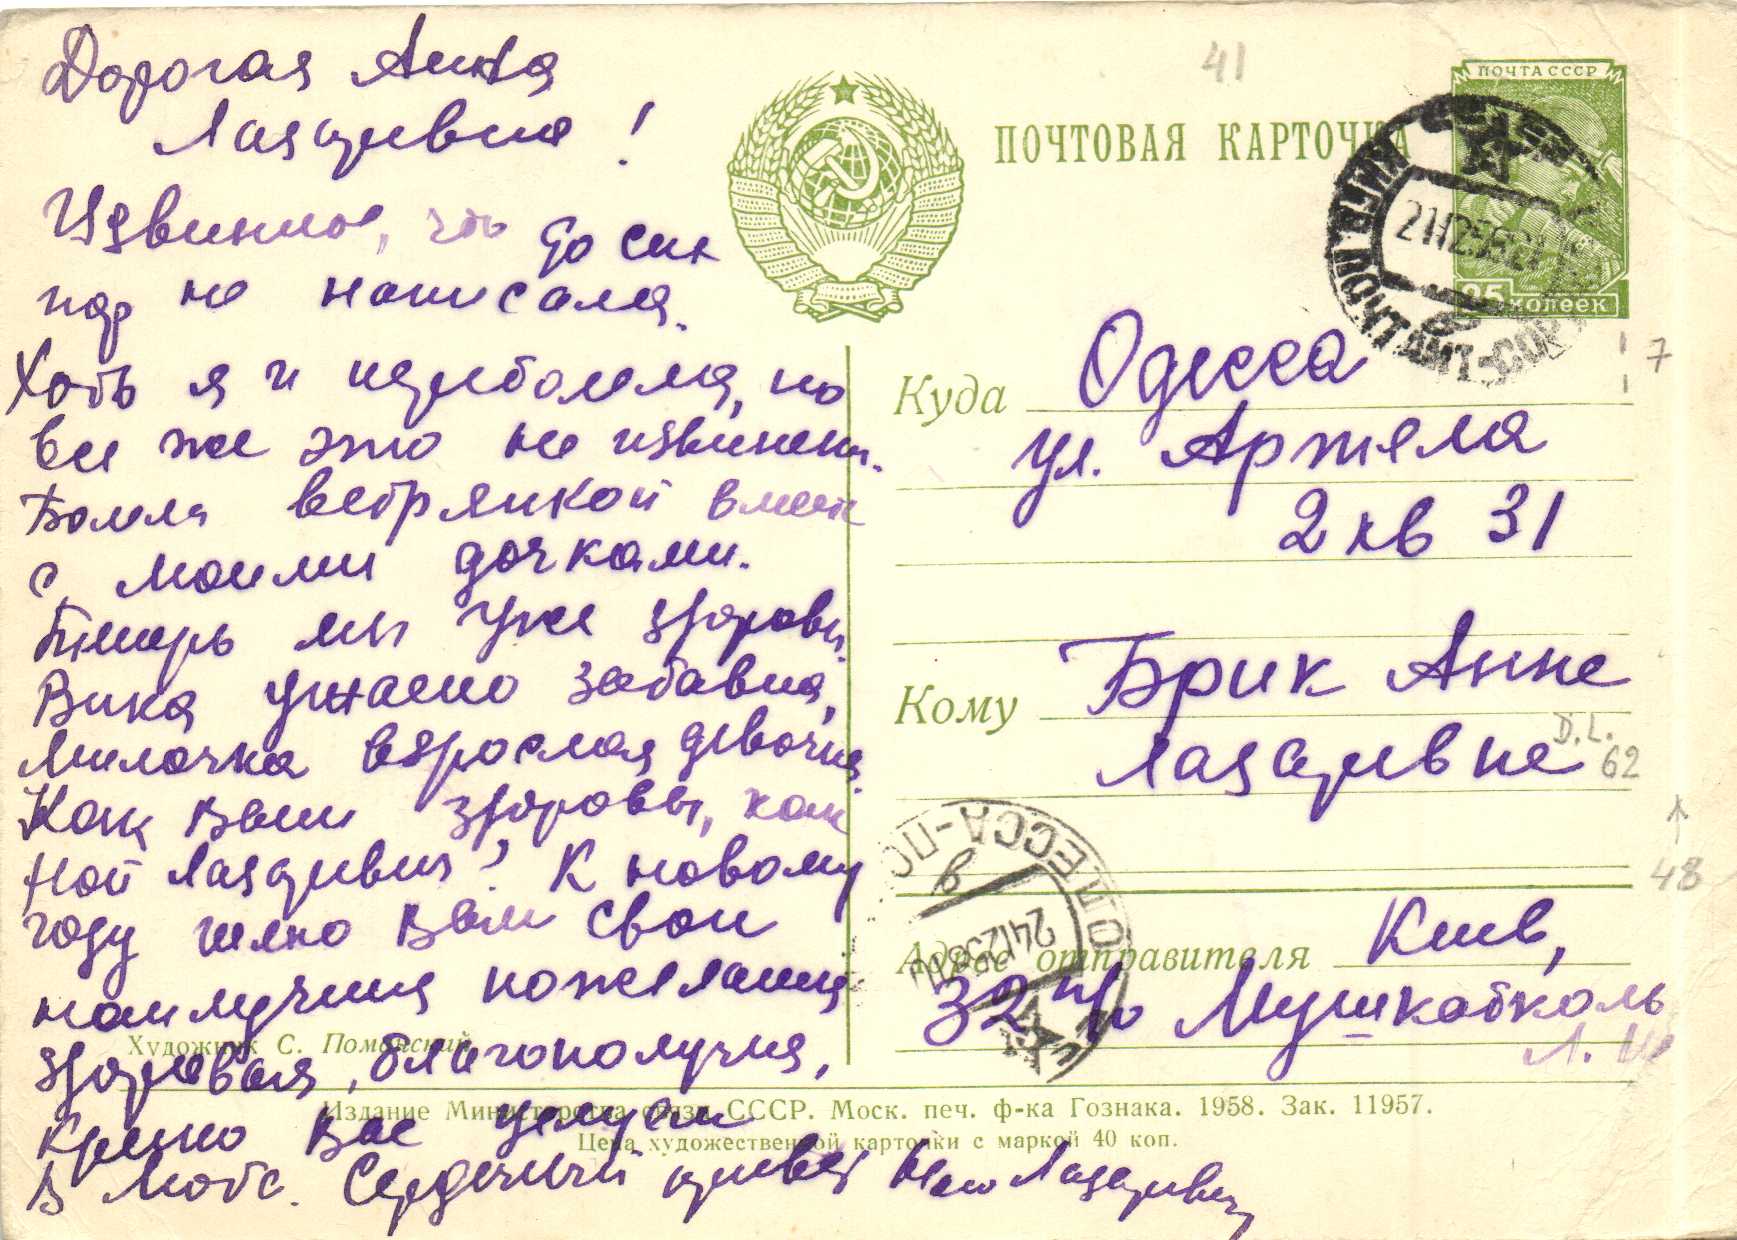 Дорогая Анна
Лазаревна!
Извините, что до сих
пор не написала.
Хоть я и переболела, но
все же это не извинен.
Болела ветрянкой вместе
с моими дочками.
Теперь мы уже здоровы.
Вика ужасно забавна,
Милочка взрослая девочка.
Как Ваши здоровье, как
Ной Лазаревич? К новому
году шлю Вам свои
наилучшие пожелания
здоровья, благополучия,
Крепко Вас целуем
Сердечный привет Ною Лазаревичу
Художник С. Поманский
ПОЧТОВАЯ КАРТОЧКА
41
ПОЧТА СССР
25 копеек
КИЕВ ПОЧТАМТ
7
Куда Одесса
ул. Артема
2 кв 31
Кому Брик Анне
Лазаревне
D.L.
62
48
ОДЕССА
Адрес отправителя Киев,
32 п/о
Издание Министерства связи СССР. Моск. печ. ф-ка Гознака. 1958. Зак. 11957.
Цена художественной карточки с маркой 40 коп.